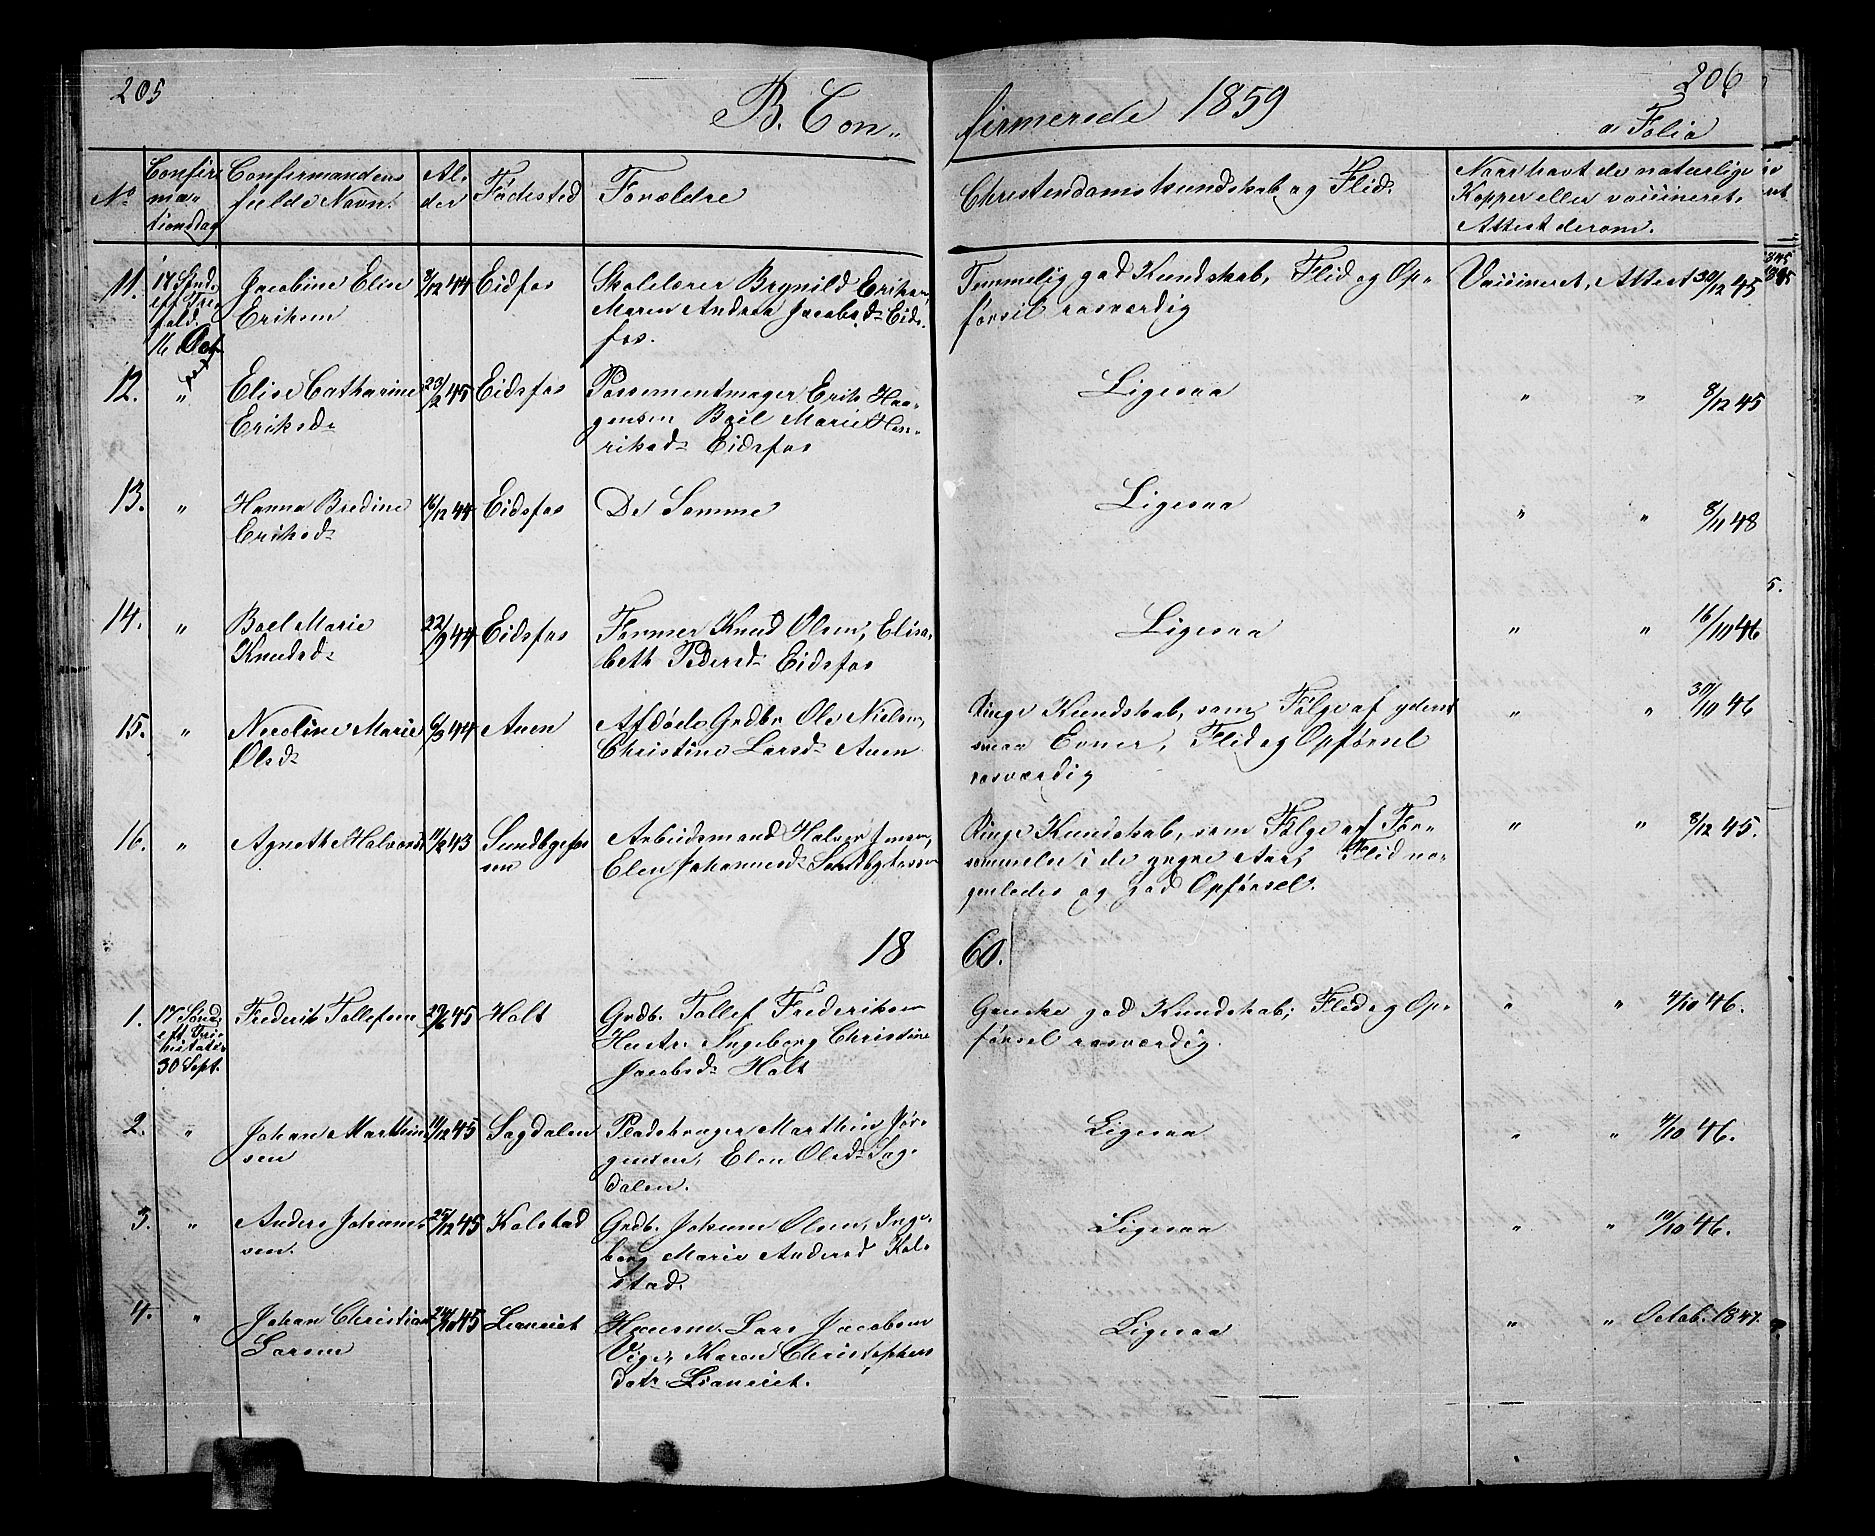 205
206
B. Con-
firmerede 1859
a Folio
No
Confir
ma-
tionsdag
Confirmandens
fulde Navn.
Al-
der
Fødested
Forældre
Christendomskundskab og Flid.
Naar havt de naturlige
Kopper eller vaccineret,
Attest derom.
11.
17 Sønd.
16 Oct
Jacobine Elise
Eriksen
9/12 44
Eidsfos
Skolelærer Brynild Eriksen,
Maren Andrea Jacobsd. Eids-
fos.
Temmelig god Kundskab, Flid og Op-
førsel rosværdig
Vaccineret, Attest 30/12 45
12.
"
Elise Cathrine
Eriksd.
23/2 45
Eidsfos
Possementmager Erik Haa-
gensen Boel Marie Hen-
riksd. Eidsfos
Ligesaa
" " 8/12 45
13.
"
Hanna Bredine
Eriksd.
16/12 44
Eidsfos
De Samme
Ligesaa
" " 8/11 48
14.
"
Boel Marie
Knudsd.
22/9 44
Eidsfos
Former Knud Olsen, Elisa-
beth Pedersd. Eidsfos
Ligesaa
" " 16/10 46
15.
"
Nicoline Marie
Olsd.
6/3 44
Auen
Afdøde Grdbr. Ole Nielsen,
Christine Larsd. Auen
Ringe Kundskab, som Følge af yderst
smaa Evner, Flid og Opførsel
rosværdig
" " 30/10 46
16.
"
Agnethe Halvorsd.
11/2 43
Sundbyfos
sen
Arbeidsmand Halvor
Elen Johannesd. Sundbyfossen
Ringe Kundskab, som Følge af For-
sømmelse i de yngre Aar, Flid no-
genledes og god Opførsel.
" " 8/12 45.
18
60.
1.
17 Sønd.
eft. Tri-
nitatis
30 Sept.
Frederik Tollefsen
29/6 45
Holt
Grdb. Tollef Frederiksen
Hustr. Ingeborg Christine
Jacobsd. Holt
Ganske god Kundskab; Flid og Op-
førsel rosværdig.
" " 4/10 46.
2.
"
Johan Marthin
sen
11/12 45
Sagdalen
Pladsbruger Marthin Jør-
gensen, Elen Olsd. Sag-
dalen.
Ligesaa
" " 4/10 46.
3.
"
Anders Johann-
sen.
25/12 45
Kolstad
Grdb. Johann Olsen, Inge-
borg Marie Andersd Kol-
stad.
Ligesaa
" " 10/10 46.
4.
"
Johan Christian
Larsen
24/10 45
Lianeiet
Huusm. Lars Jacobsen
Vige, Karen Christophers
datr Lianeiet.
Ligesaa
" " Octob. 1847.